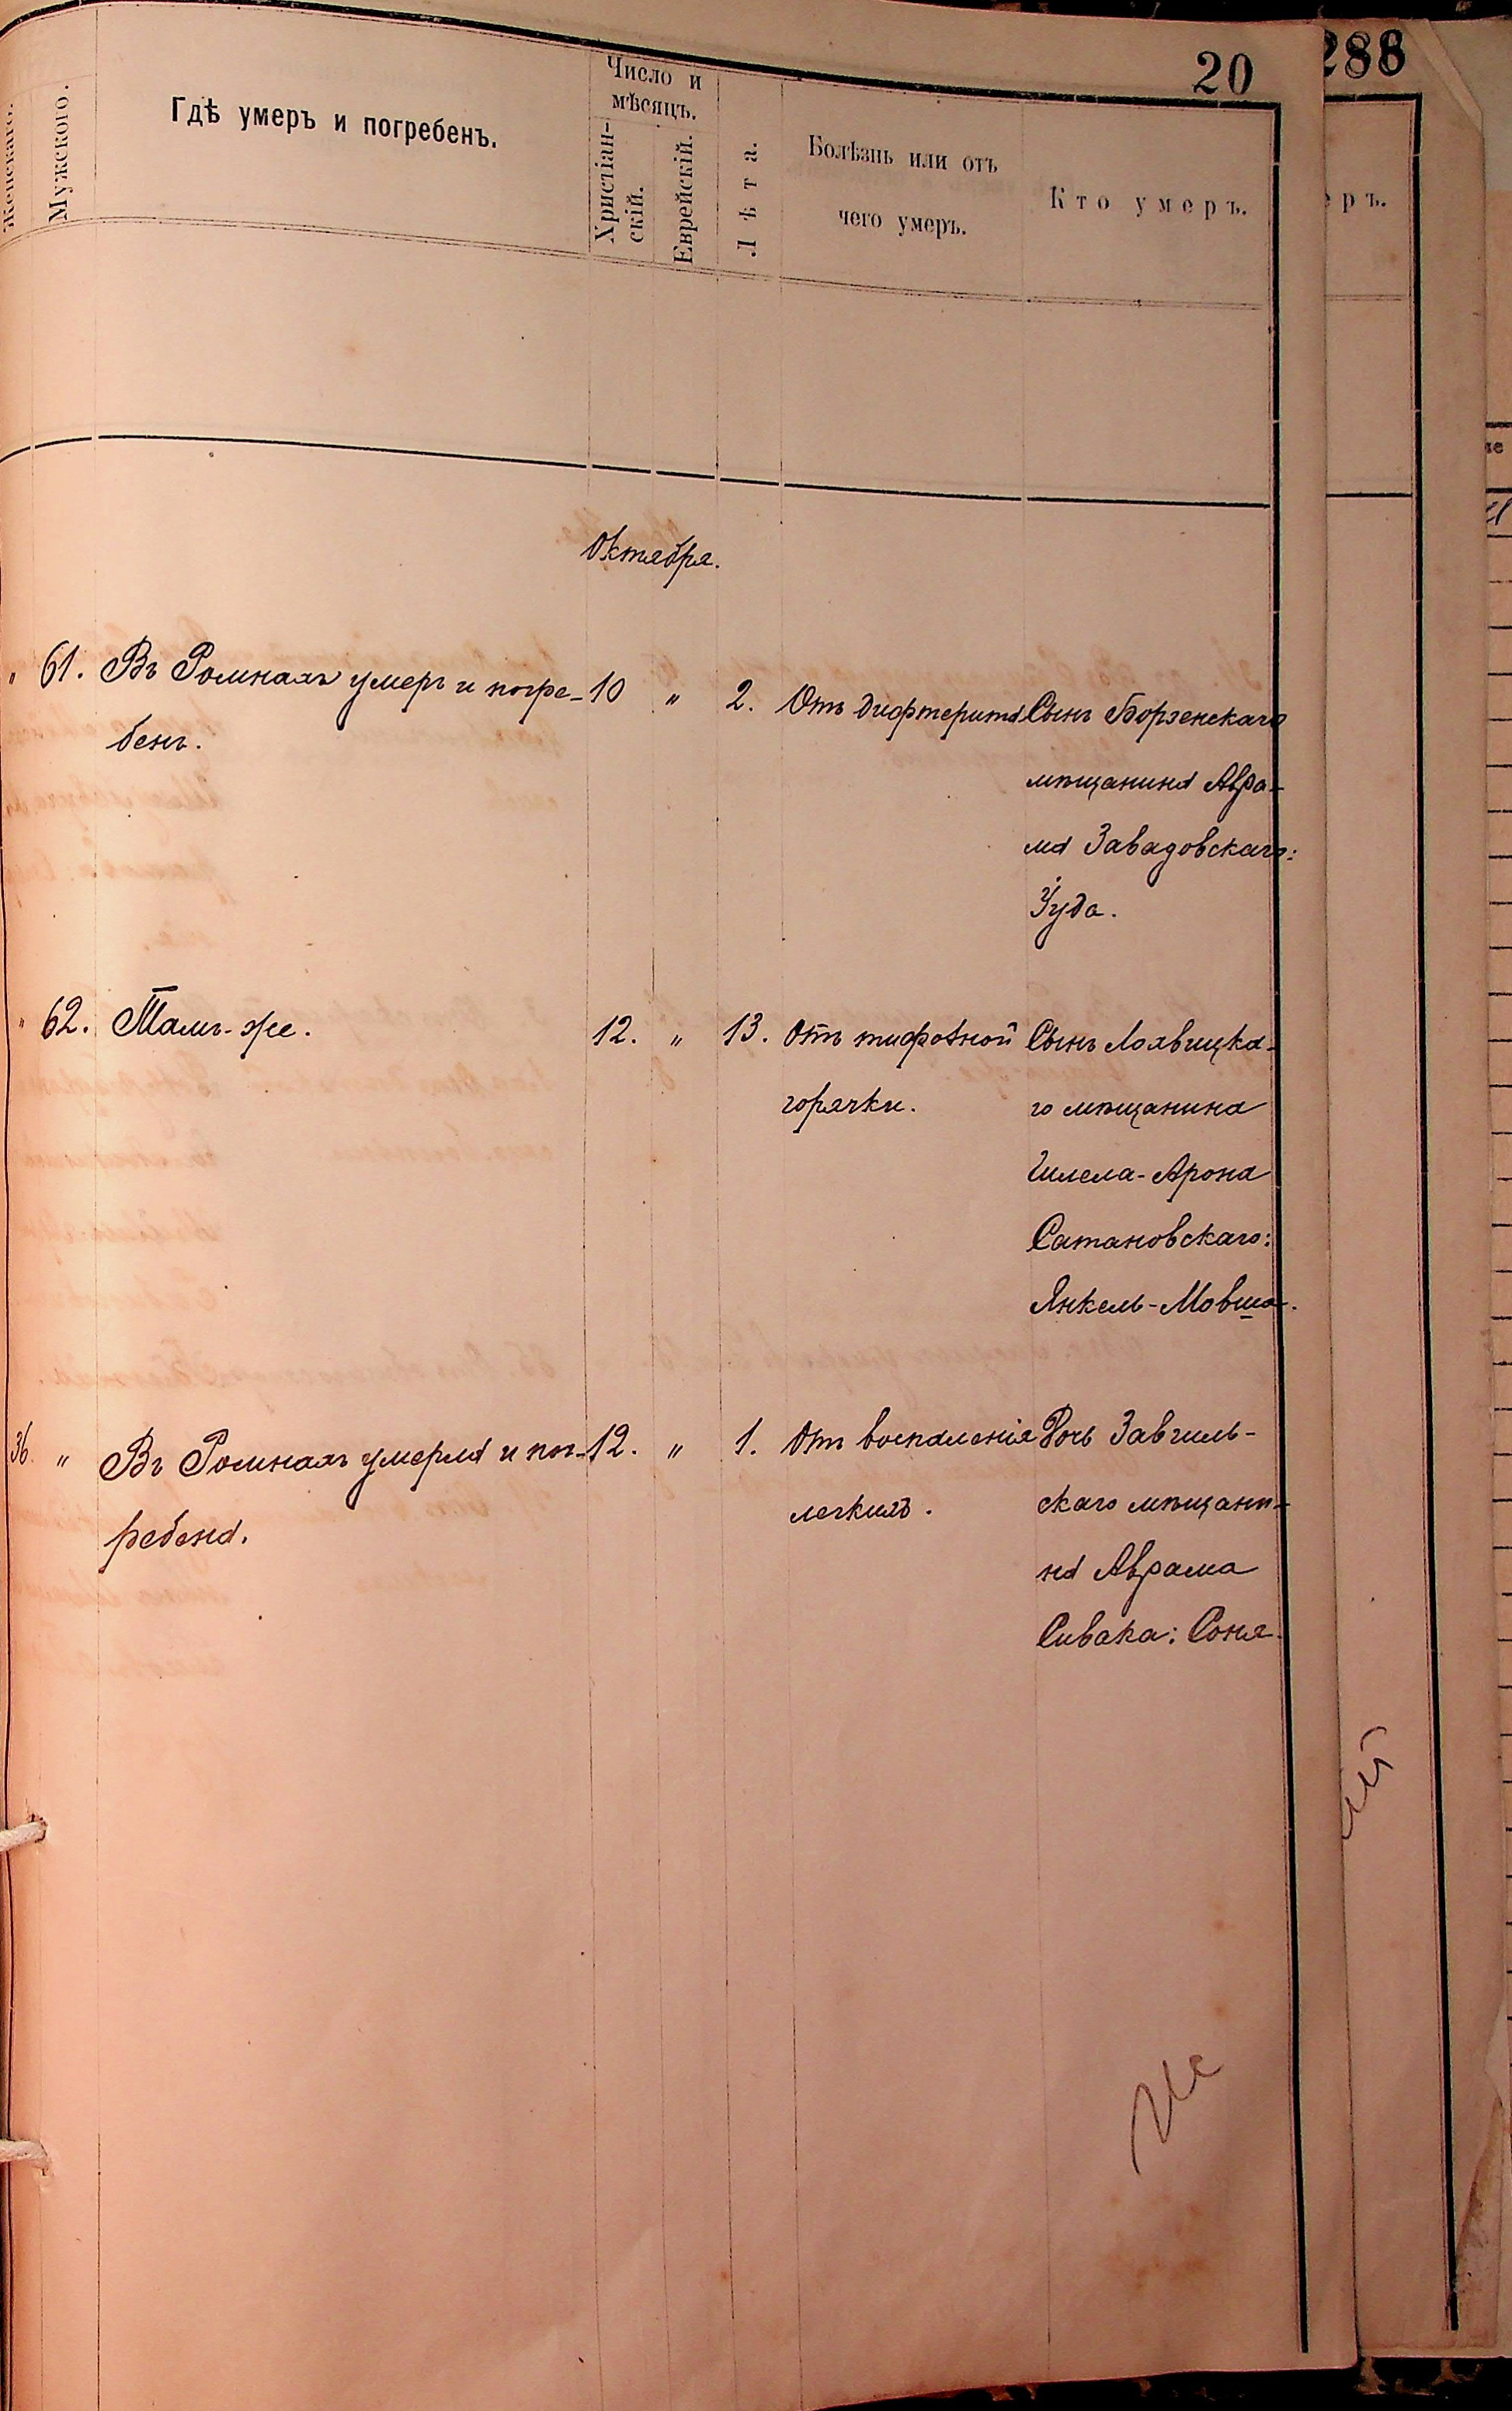 20
288
Женскаго.
Мужскаго.
Гдѣ умеръ и погребенъ.
Число и
мѣсяцъ.
Христіан-
скій.
Еврейскій.
Лѣта.
Болѣзнь или отъ
чего умеръ.
Кто умеръ.
еръ.
Октября.
" 61. Въ Ромнахъ умеръ и погре- 10 " 2. Отъ дифтерита Сынъ Борзенскаго
бенъ.
мѣщанина Авра-
ма Завадовскаго:
Іуда.
" 62. Тамъ-же. 12. " 13. Отъ тифозной Сынъ Лохвицка-
горячки. го мѣщанина
Гилела-Арона
Сатановскаго:
Янкель-Мовша.
36. " Въ Ромнахъ умерла и пог- 12. " 1. Отъ воспаленія Дочь Завгиль-
ребена. легкихъ. скаго мѣщани-
на Аврама
Сивака: Соня.